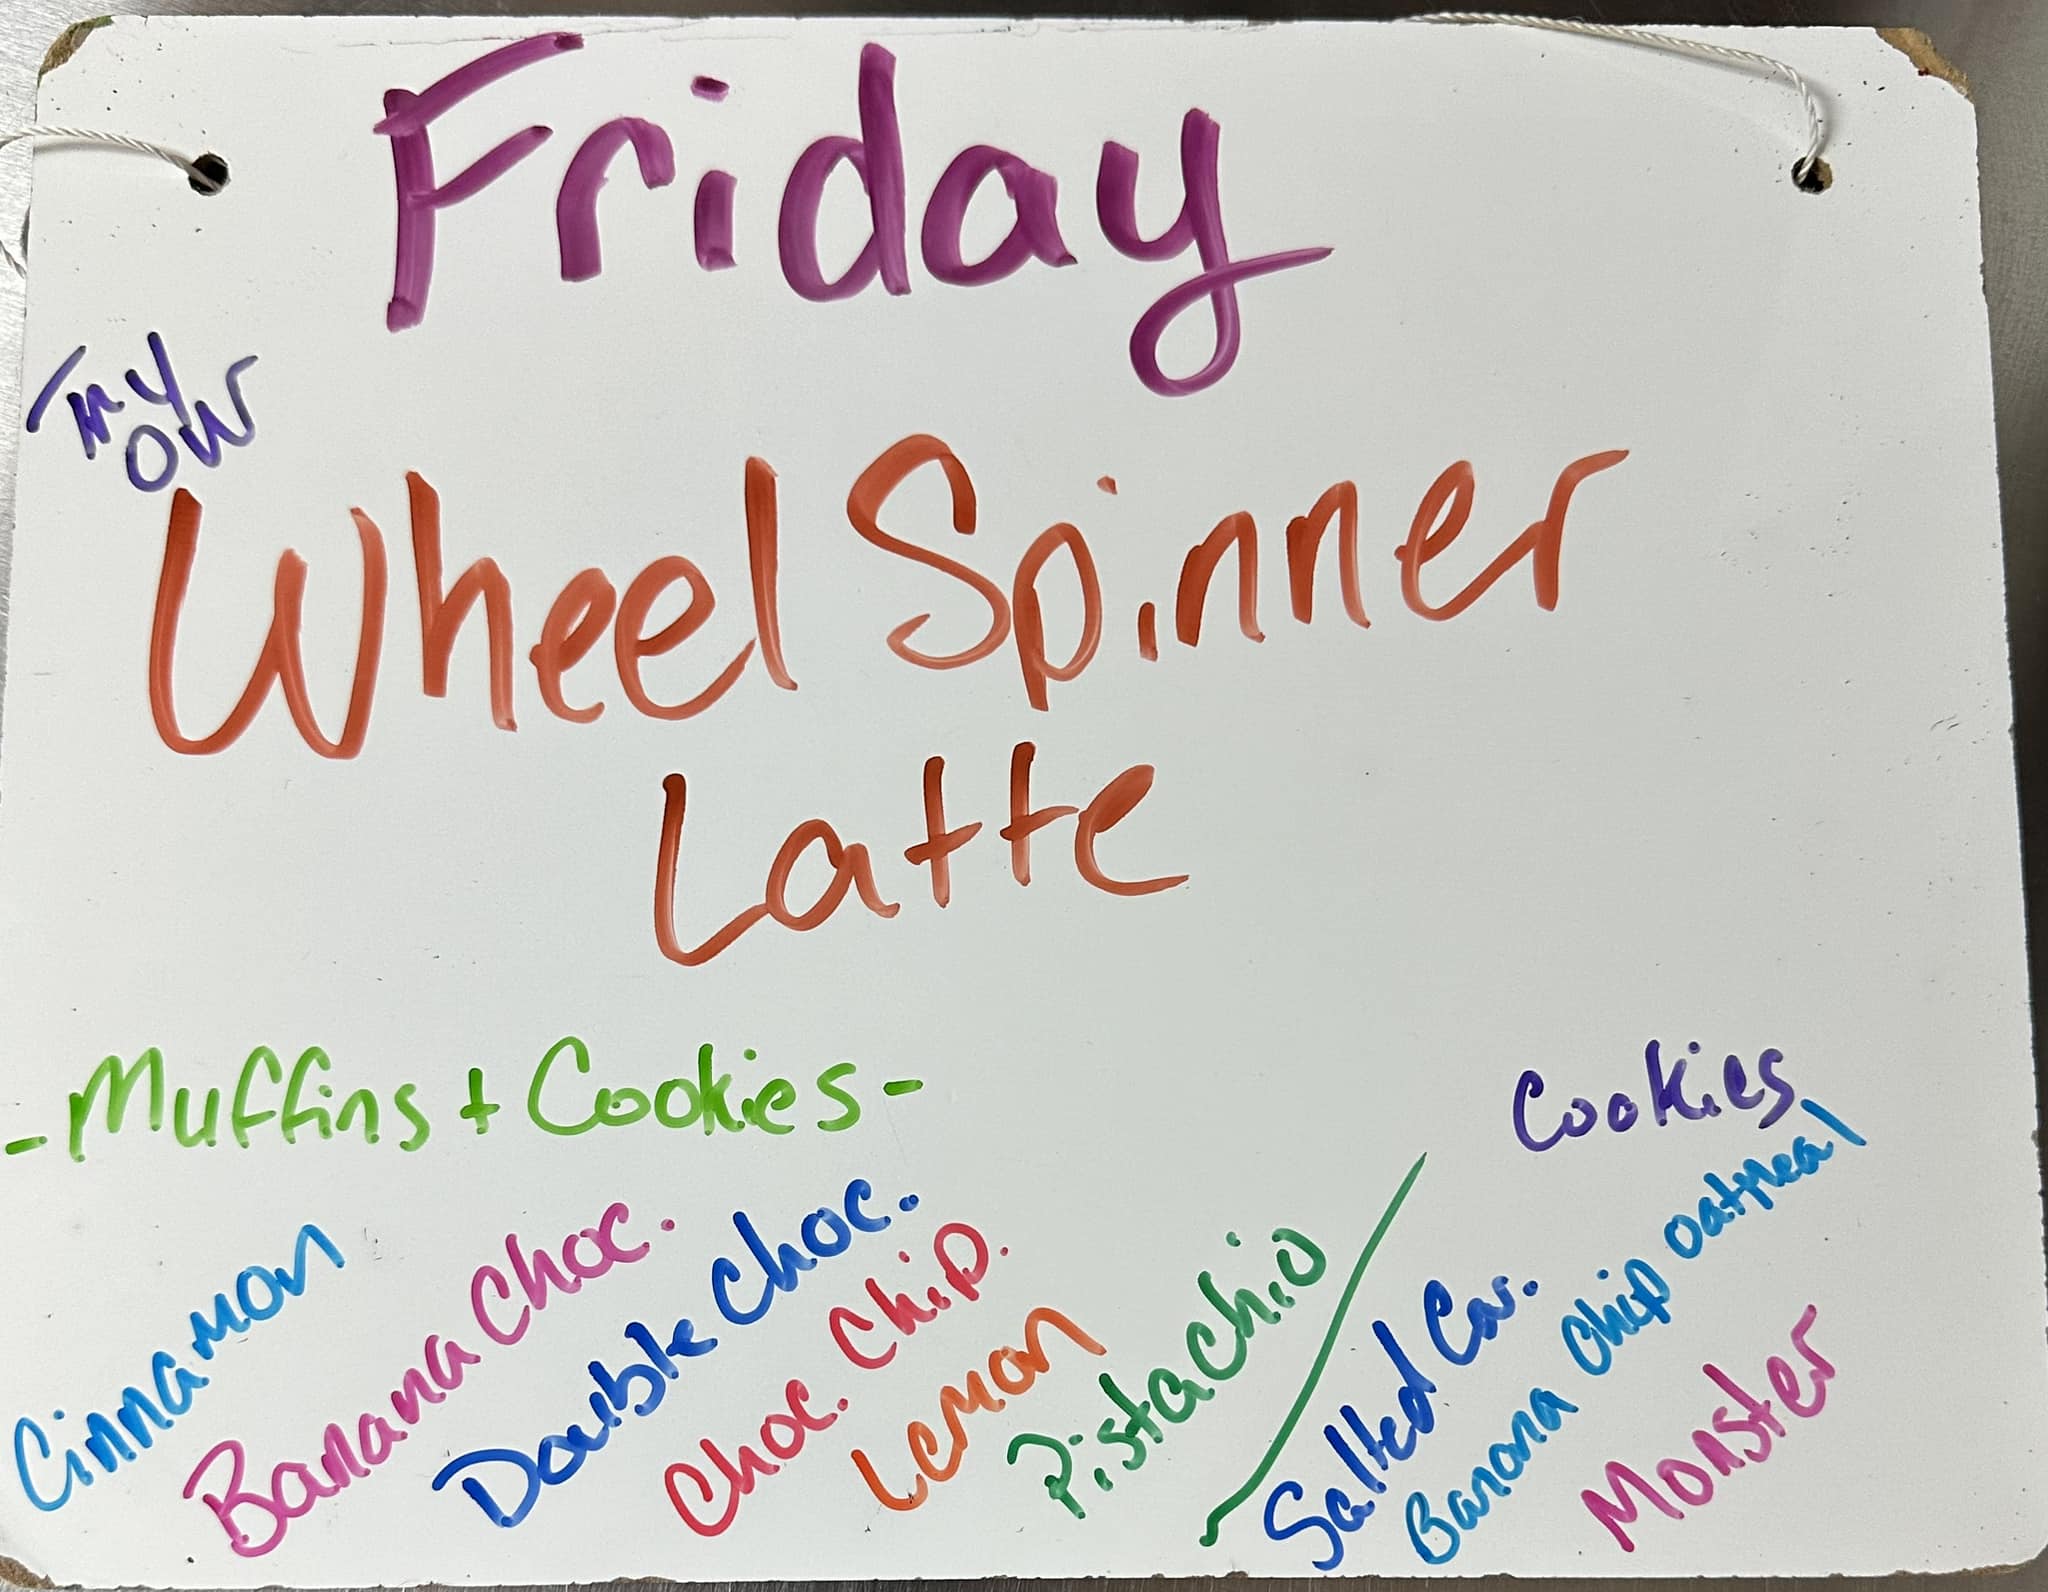 Friday
Try
our
Wheel Spinner
Latte
- Muffins + Cookies -
Cinnamon
Banana Choc.
Double Choc.
Choc. Chip.
Lemon
Pistachio
Cookies
Salted Car.
Banana Chip oatmeal
Monster